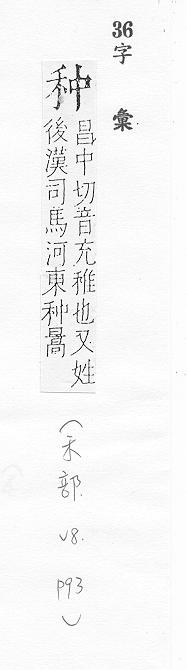 36字彙
种
昌中切音充稚也又姓
後漢司馬河東种暠
（禾部 v8. p93）